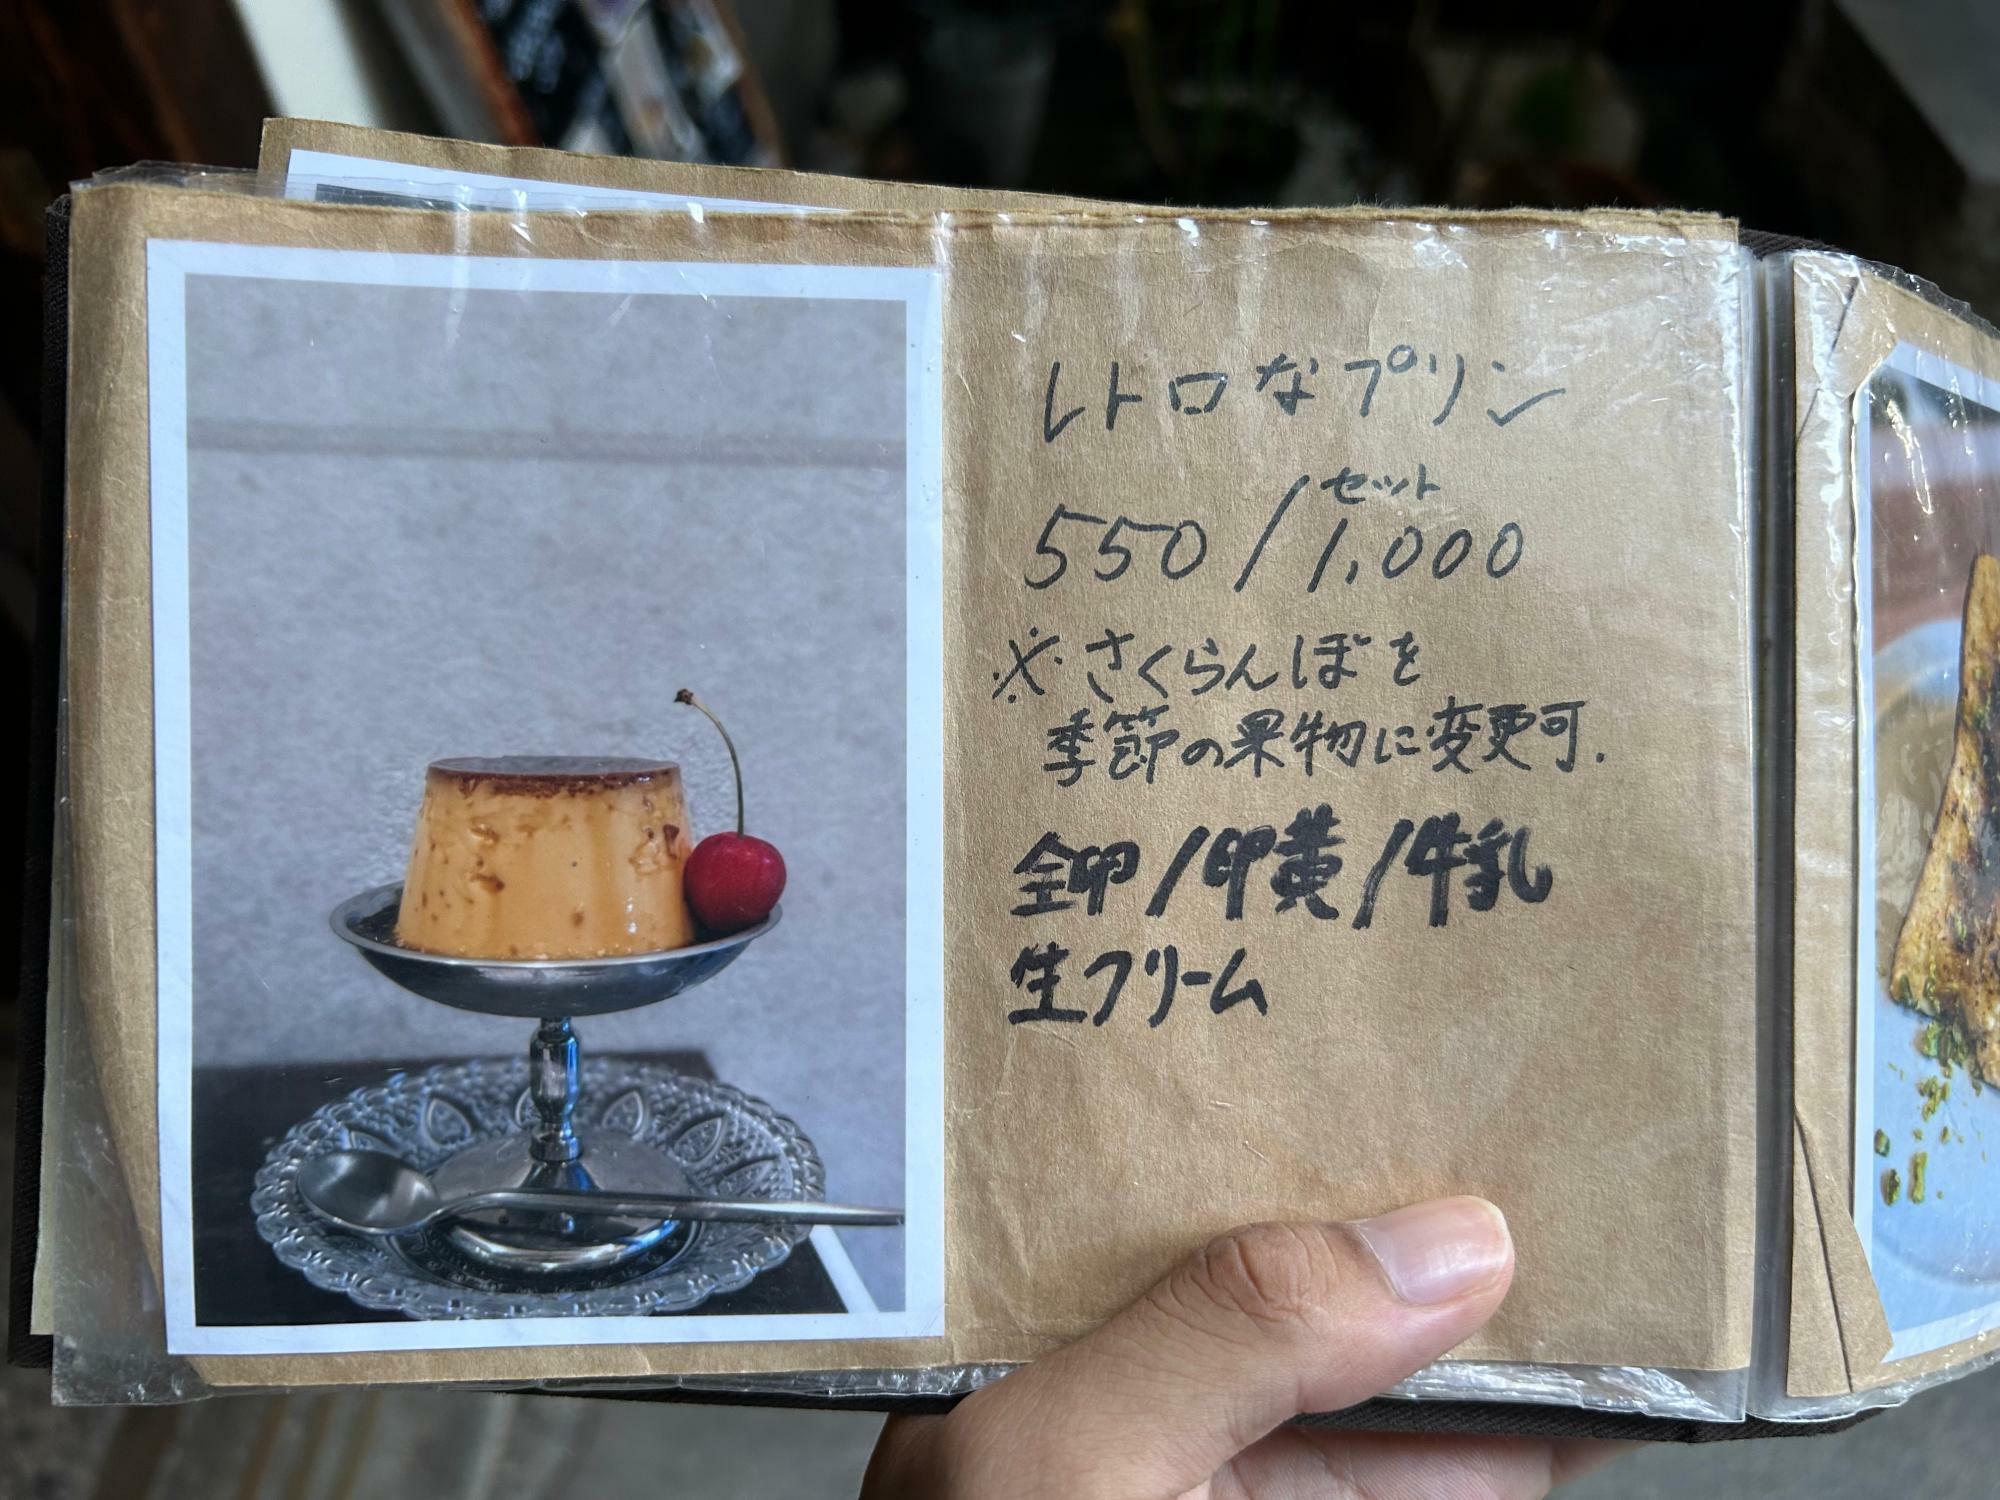 レトロなプリン
セット
550/1,000
※さくらんぼを
季節の果物に変更可.
全卵/卵黄/牛乳
生クリーム